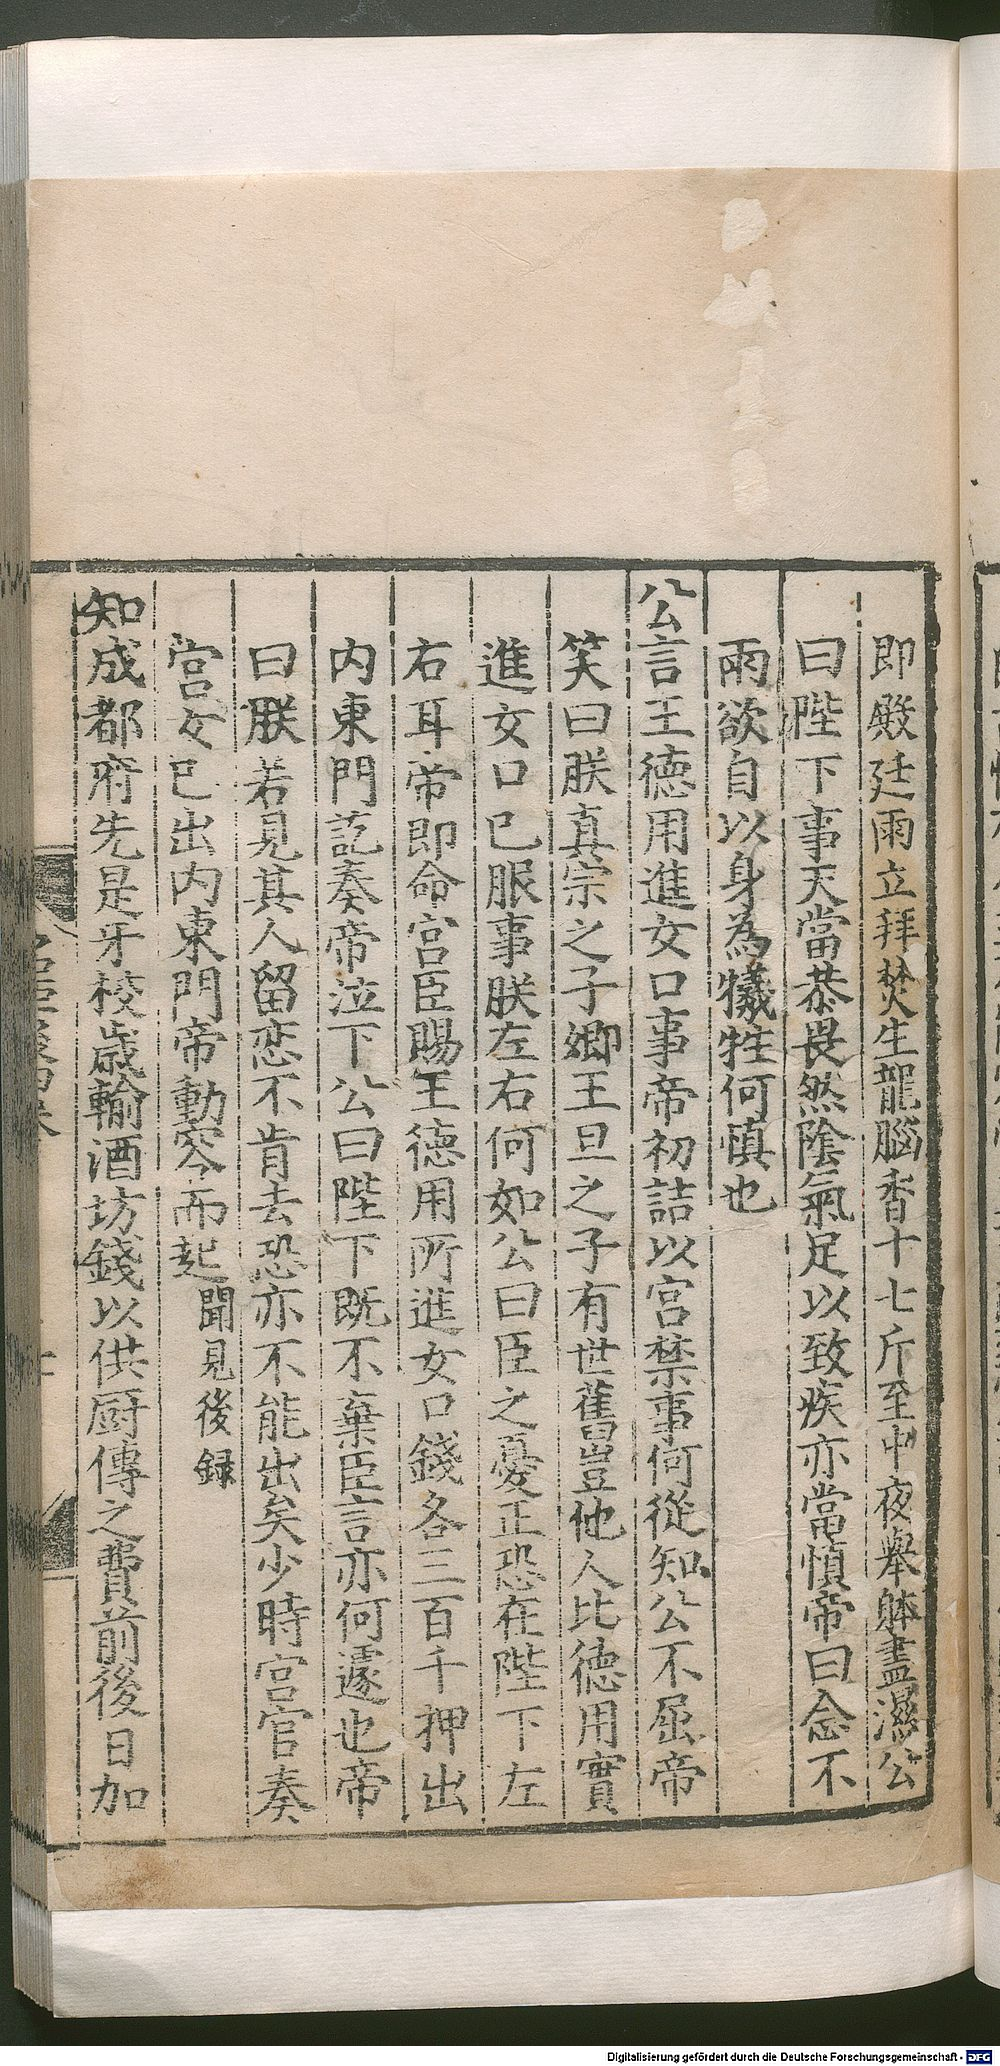 即殿廷雨立拜焚生龍腦香十七斤至中夜舉躰盡濕公
曰陛下事天當恭畏然陰氣足以致疾亦當慎帝曰念不
雨欲自以身為犧牲何慎也
公言王德用進女口事帝初詰以宮禁事何從知公不屈帝
笑曰朕真宗之子卿王旦之子有世舊豈他人比德用實
進女口已服事朕左右何如公曰臣之憂正恐在陛下左
右耳帝即命宮臣賜王德用所進女口錢各三百千押出
內東門訖奏帝泣下公曰陛下既不棄臣言亦何遽也帝
曰朕若見其人留恋不肯去恐亦不能出矣少時宮官奏
宮女已出內東門帝動容而起聞見後録
知成都府先是牙校歲輸酒坊錢以供厨傳之費前後日加
Digitalisierung gefördert durch die Deutsche Forschungsgemeinschaft - DFG